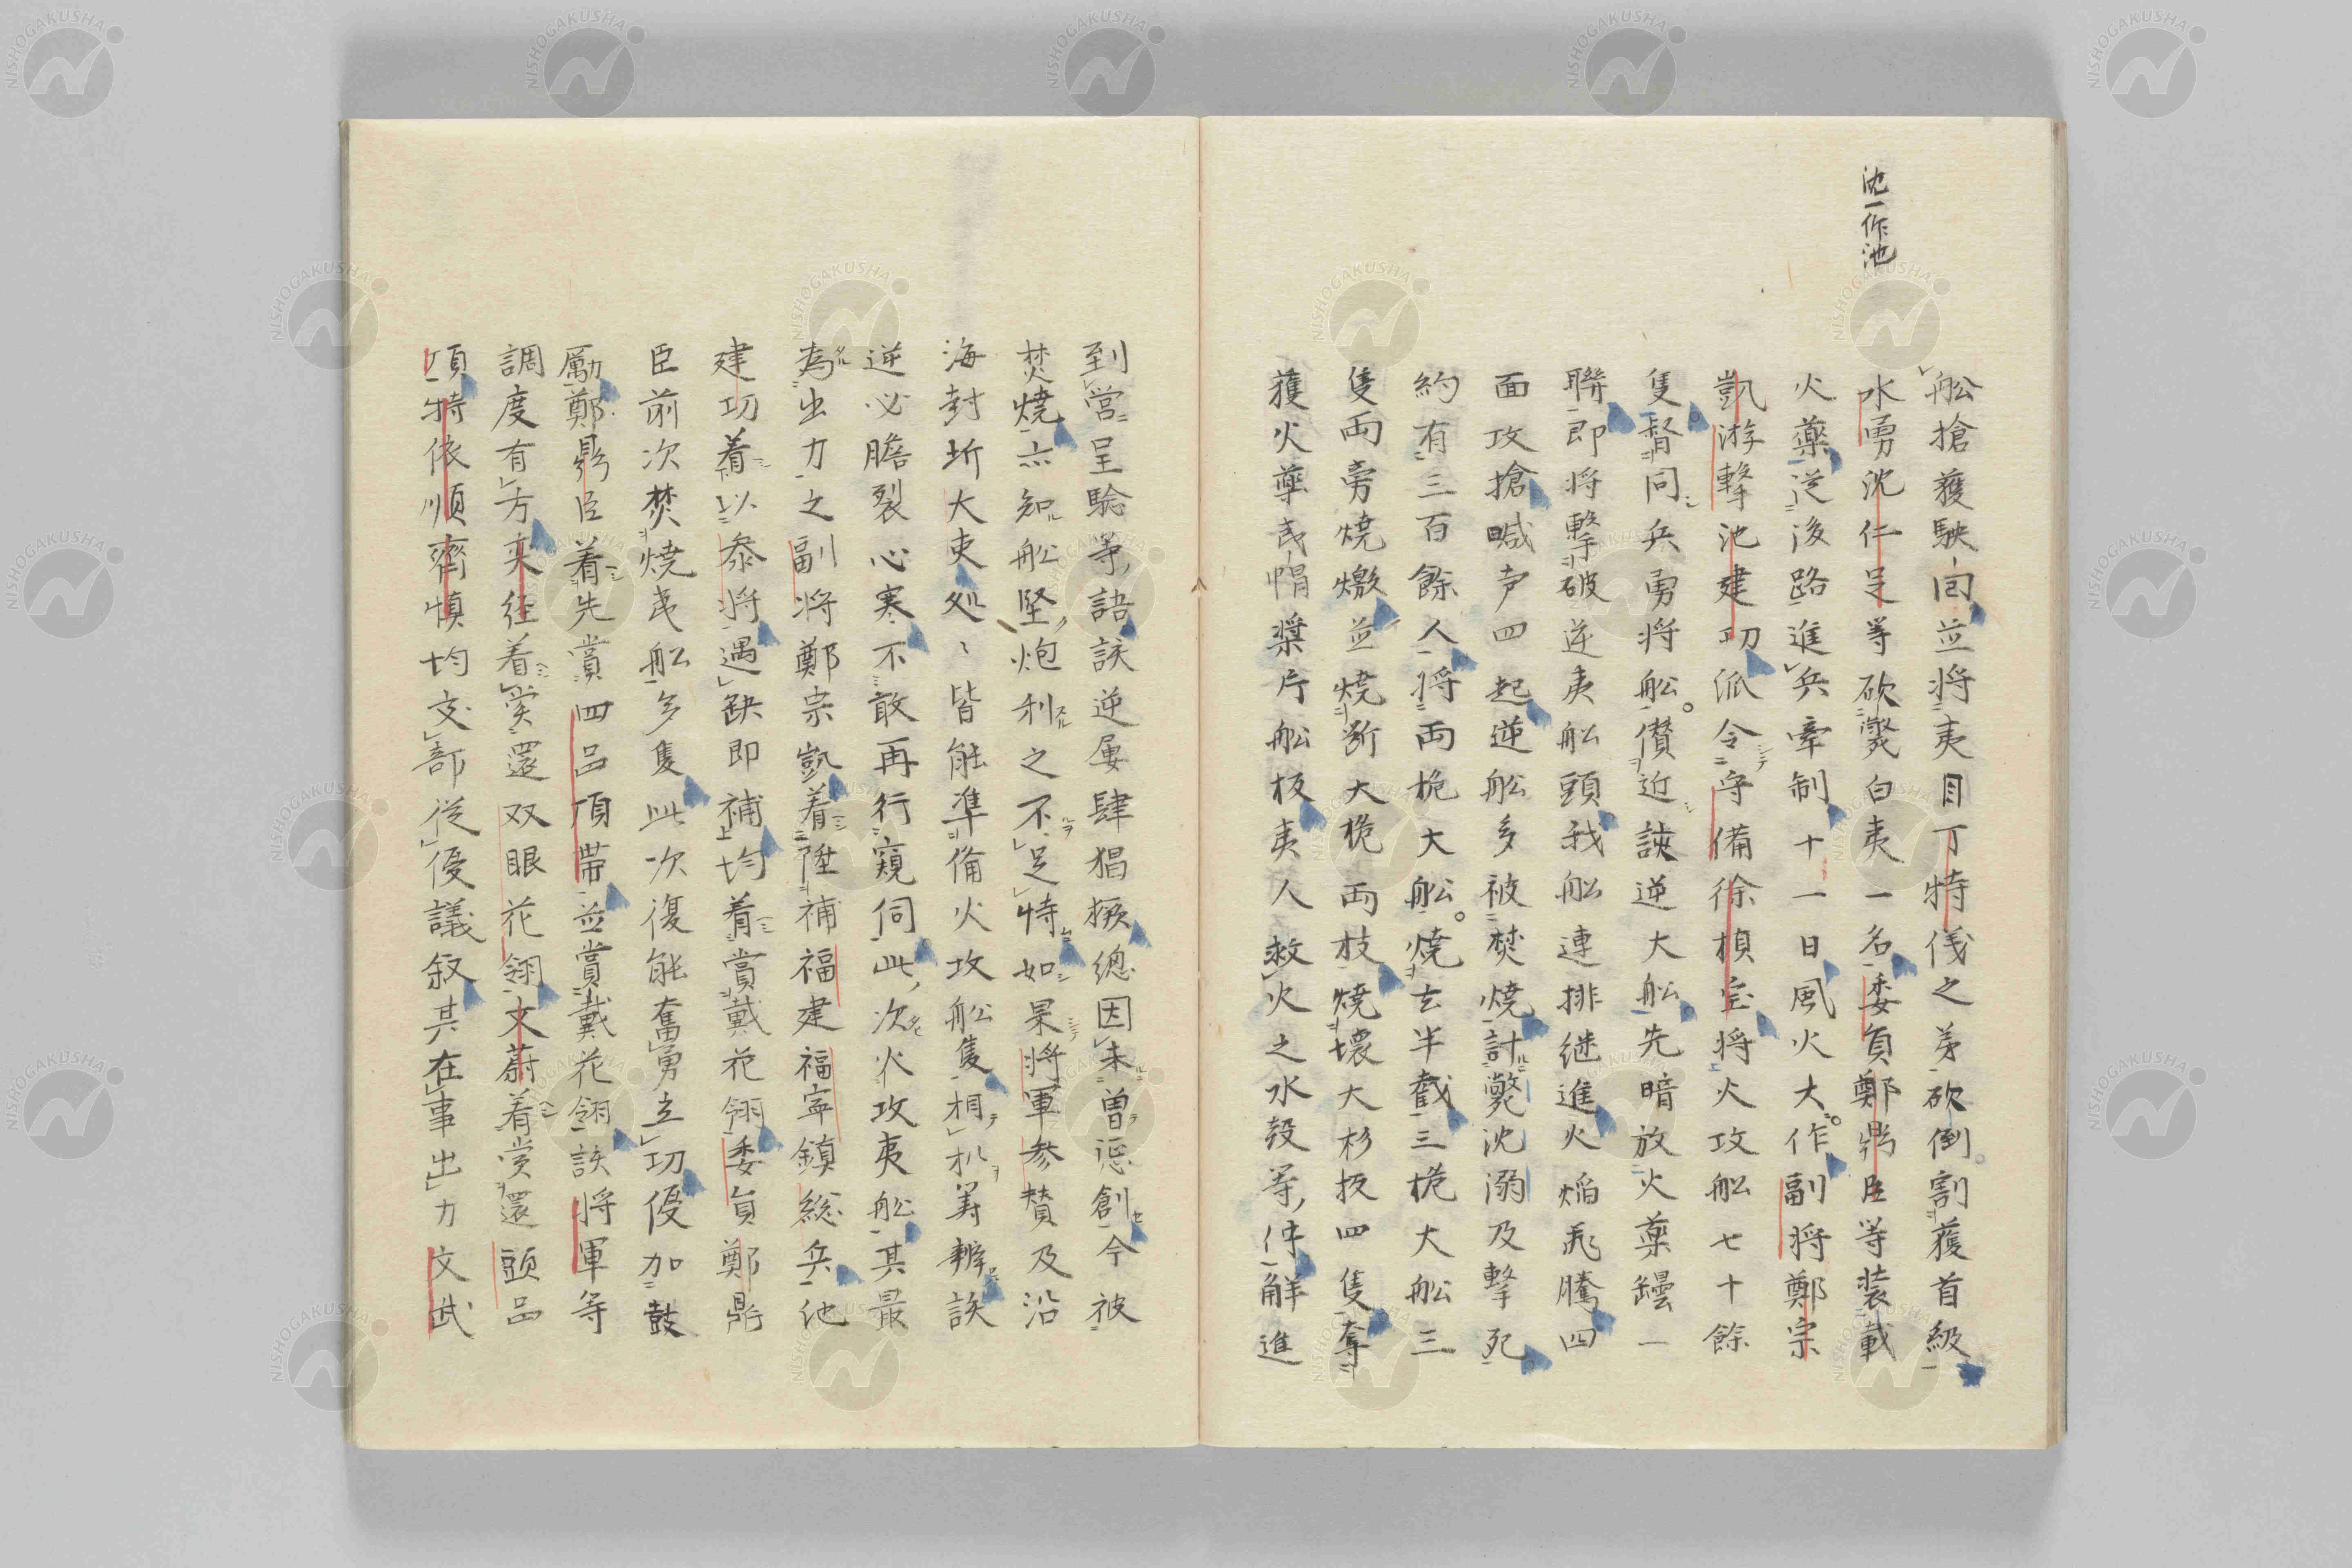 沈一作池
舩搶獲駛囘並将夷目丁特伐之弟砍倒割獲首級
水勇沈仁足等砍斃白夷一名委負鄭鼎臣等装載
火藥従後路進兵牽制十一日風火大作副将鄭宗
凱游撃池建功派令守備徐楨宝将火攻舩七十餘
隻督同兵勇将舩儹近該逆大舩先暗放火薬罎一
聯即将撃破逆夷舩頭我舩連排継進火焔飛騰四
面攻搶喊声四起逆舩多被焚焼計斃沈溺及撃死
約有三百餘人将両桅大舩焼去半截三桅大舩三
隻両旁焼燬並焼斷大桅両枝焼壊大杉扳四隻奪
獲火藥夷帽槳片舩板夷人救火之水殻等件解進
到營呈驗等語該逆屡肆猖獗總因未曽懲創今被
焚燒亦知舩堅炮利之不足恃如果将軍参賛及沿
海封圻大吏処〻皆能準備火攻舩隻相机筹辦該
逆必膽裂心寒不敢再行窺伺此次火攻夷舩其最
為出力之副将鄭宗凱着陞補福建福寧鎮総兵池
建功着以叅将遇缺即補均着賞戴花翎委負鄭鼎
臣前次焚焼夷舩多隻此次復能奮勇立功優加鼓
勵鄭鼎臣着先賞四品頂帶並賞戴花翎該将軍等
調度有方奕経着賞還双眼花翎文蔚着賞還頭品
頂特依順齊慎均交部従優議叙其在事出力文武
NISHOGAKUSHA